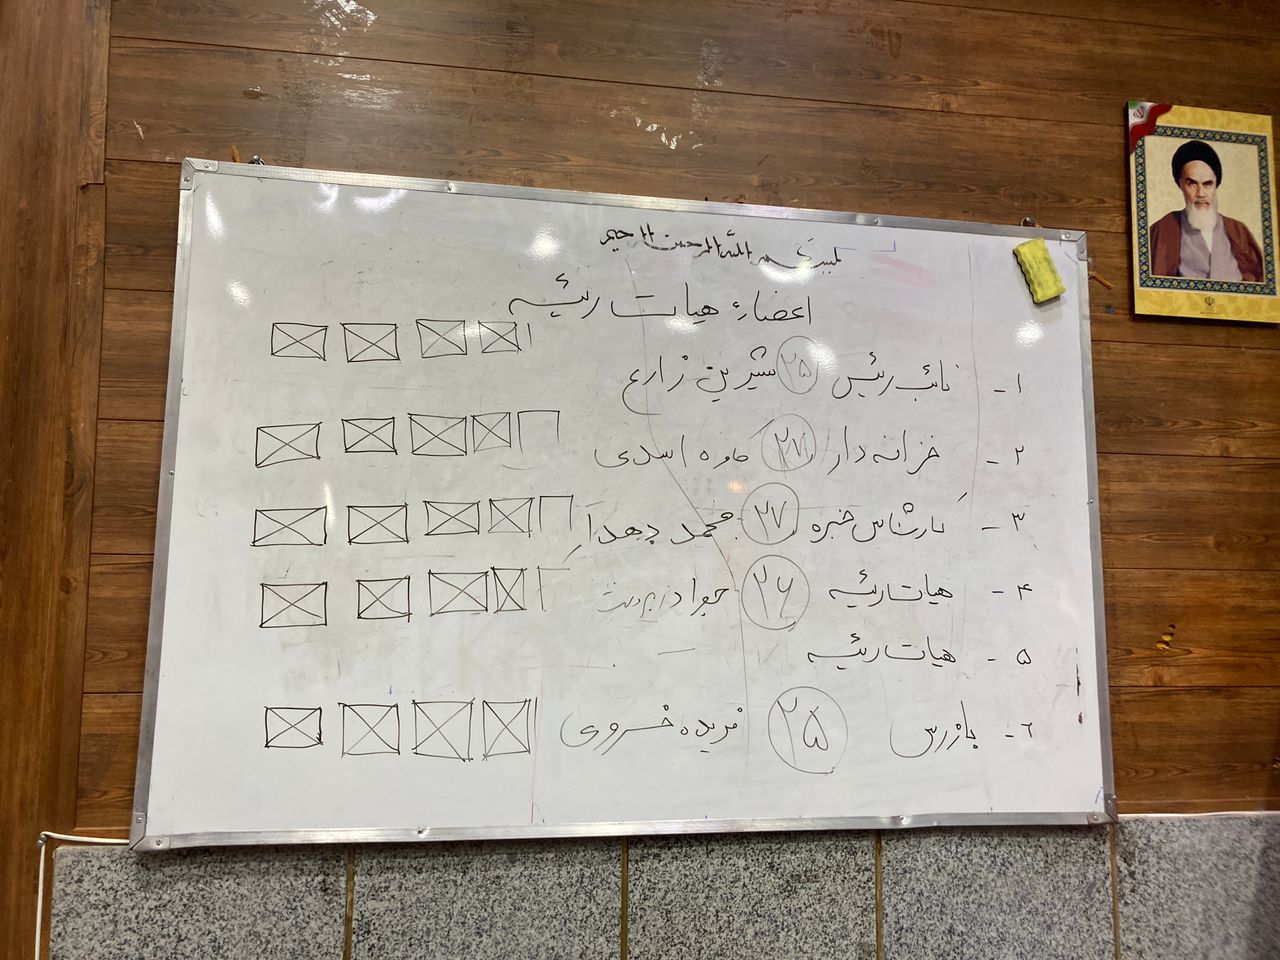 بسم الله الرحمن الرحیم
اعضاء هیات رئیسه
۱- نائب رئیس ۲۵ شیرین زارع
۲- خزانه دار ۲۷ کاوه اسدی
۳- کارشناس خبره ۲۷ محمد دهدار
۴- هیات رئیسه ۲۶ جواد زبردست
۵- هیات رئیسه
۶- بازرس ۲۵ فریده خسروی